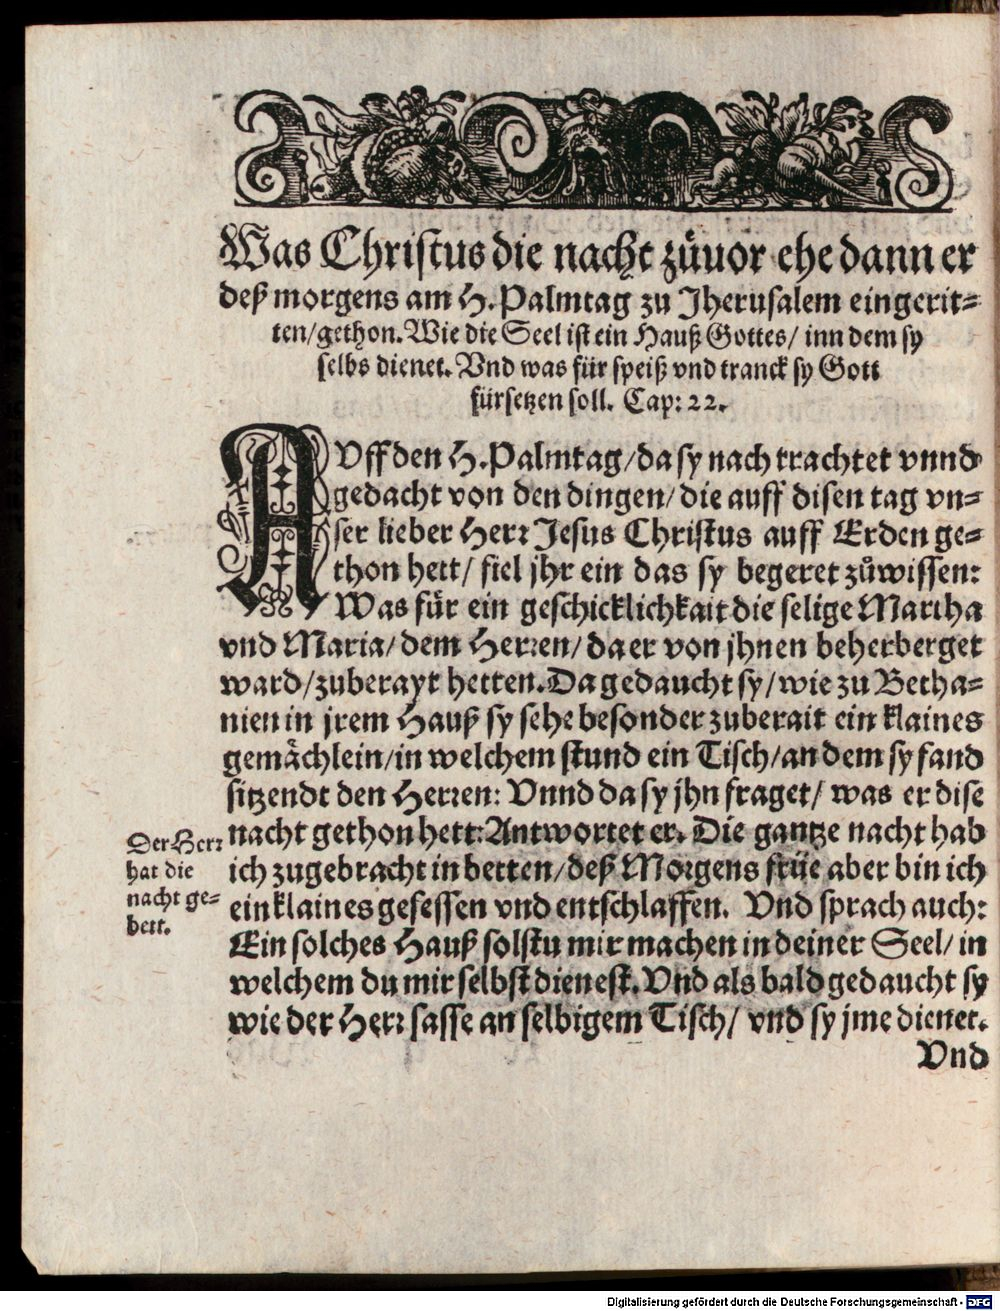 Was Christus die nacht zůuor ehe dann er
deß morgens am H. Palmtag zu Jherusalem eingerit-
ten/ gethon. Wie die Seel ist ein Hauß Gottes/ inn dem sy
selbs dienet. Vnd was für speiß vnd tranck sy Gott
fürsetzen soll. Cap: 22.
AVff den H. Palmtag/ da sy nach trachtet vnnd
gedacht von den dingen/ die auff disen tag vn-
ser lieber Herr Jesus Christus auff Erden ge-
thon hett/ fiel jhr ein das sy begeret zůwissen:
Was für ein geschicklichkait die selige Martha
vnd Maria/ dem Herren/ da er von jhnen beherberget
ward/ zuberayt hetten. Da gedaucht sy/ wie zu Betha-
nien in jrem Hauß sy sehe besonder zuberait ein klaines
gemächlein/ in welchem stund ein Tisch/ an dem sy fand
sitzendt den Herren: Vnnd da sy jhn fraget/ was er dise
nacht gethon hett: Antwortet er. Die gantze nacht hab
ich zugebracht in betten/ deß Morgens früe aber bin ich
ein klaines gesessen vnd entschlaffen. Vnd sprach auch:
Ein solches Hauß solstu mir machen in deiner Seel/ in
welchem du mir selbst dienest. Vnd als bald gedaucht sy
wie der Herr sasse an selbigem Tisch/ vnd sy jme dienet.
Vnd
Der Herr
hat die
nacht ge-
bett.
Digitalisierung gefördert durch die Deutsche Forschungsgemeinschaft - DFG